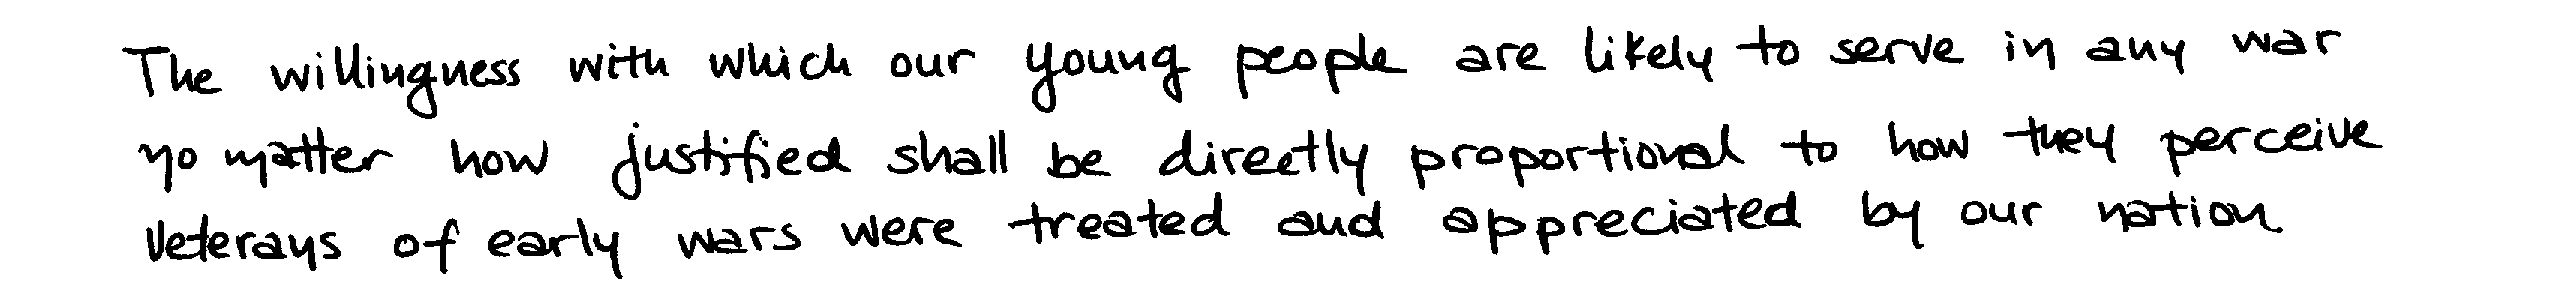 The willingness with which our young people are likely to serve in any war
no matter how justified shall be directly proportional to how they perceive
veterans of early wars were treated and appreciated by our nation